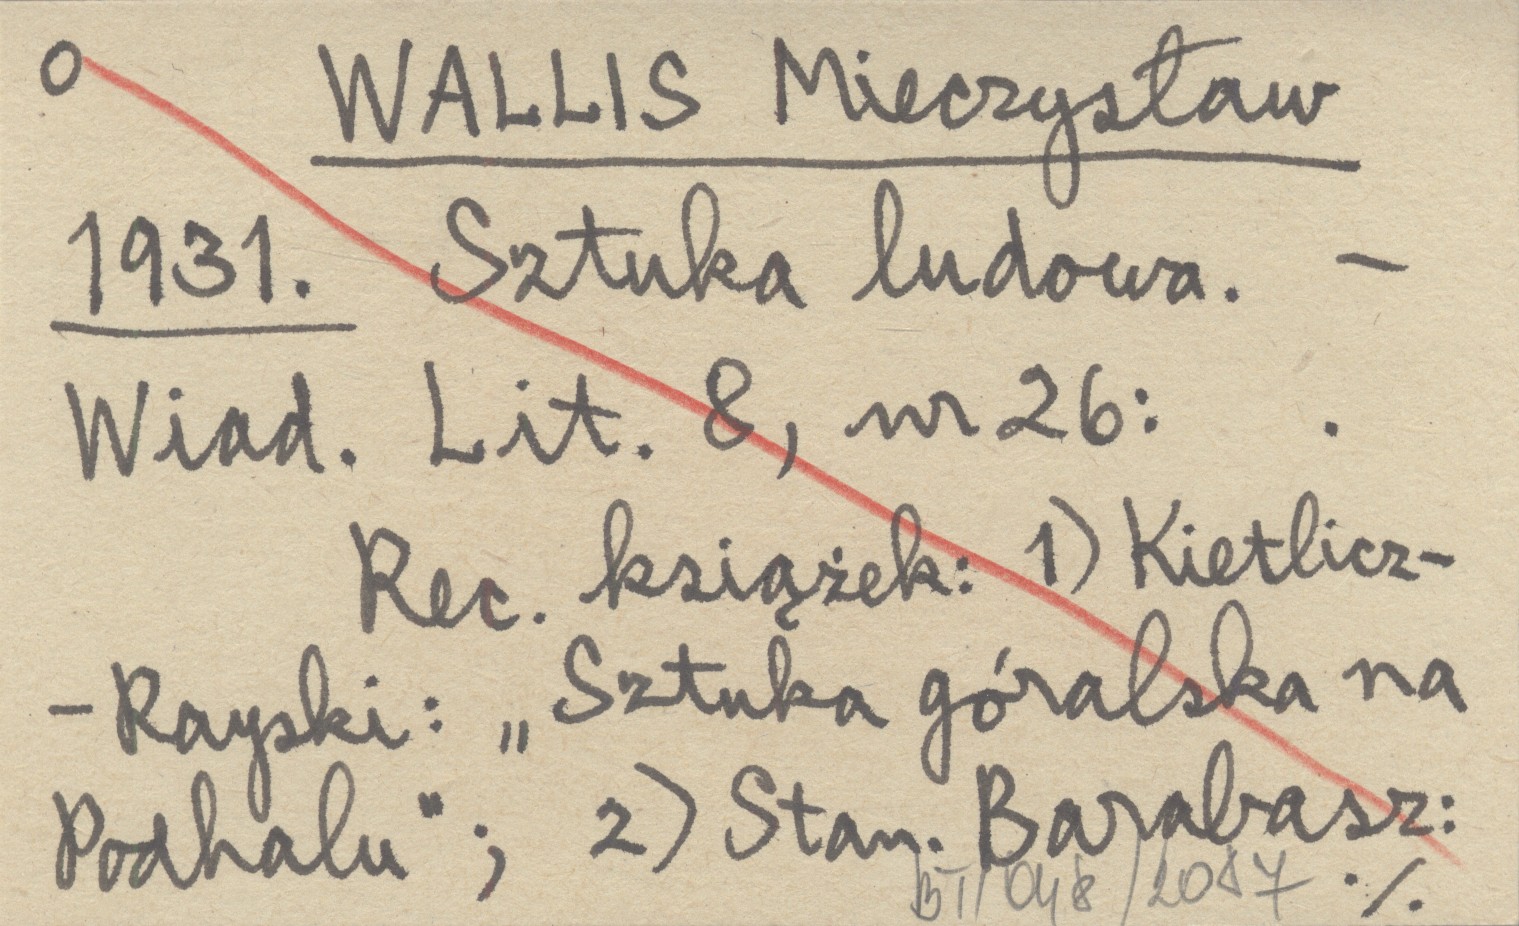 O WALLIS Mieczysław
1931. Sztuka ludowa. –
Wiad. Lit. 8, nr 26: .
Rec. książek: 1) Kietlicz-
-Rayski: „Sztuka góralska na
Podhalu"; 2) Stan. Barabasz:
BT/048/2017 ./.